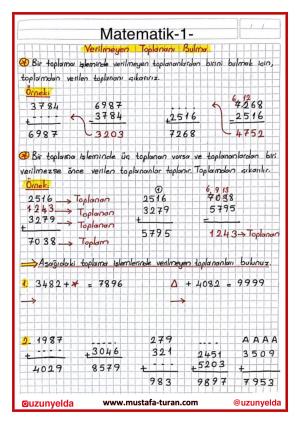 Matematik-1-
Verilmeyen Toplananı Bulma
Bir toplama işleminde verilmeyen toplananlardan birini bulmak için,
toplamdan verilen toplananı çıkarırız.
Örnek:
6, 12
3784 6987 7268
+ .... - 3784 + 2516 - 2516
6987 3203 7268 4752
Bir toplama işleminde üç toplanan varsa ve toplananlardan biri
verilmezse önce verilen toplananlar toplanır. Toplamdan çıkarılır.
Örnek:
2516 → Toplanan 2516 7038
1243 → Toplanan 3279 5795
+ 3279 → Toplanan + -
7038 → Toplam 5795 1243 → Toplanan
Aşağıdaki toplama işlemlerinde verilmeyen toplananları bulunuz.
1. 3482 + * = 7896 Δ + 4082 = 9999
→ →
2. 1987 .... 279 .... AAAA
+ .... + 3046 321 2451 3509
4029 8579 + ... + 5203 +
983 9897 7953
@uzunyelda www.mustafa-turan.com @uzunyelda